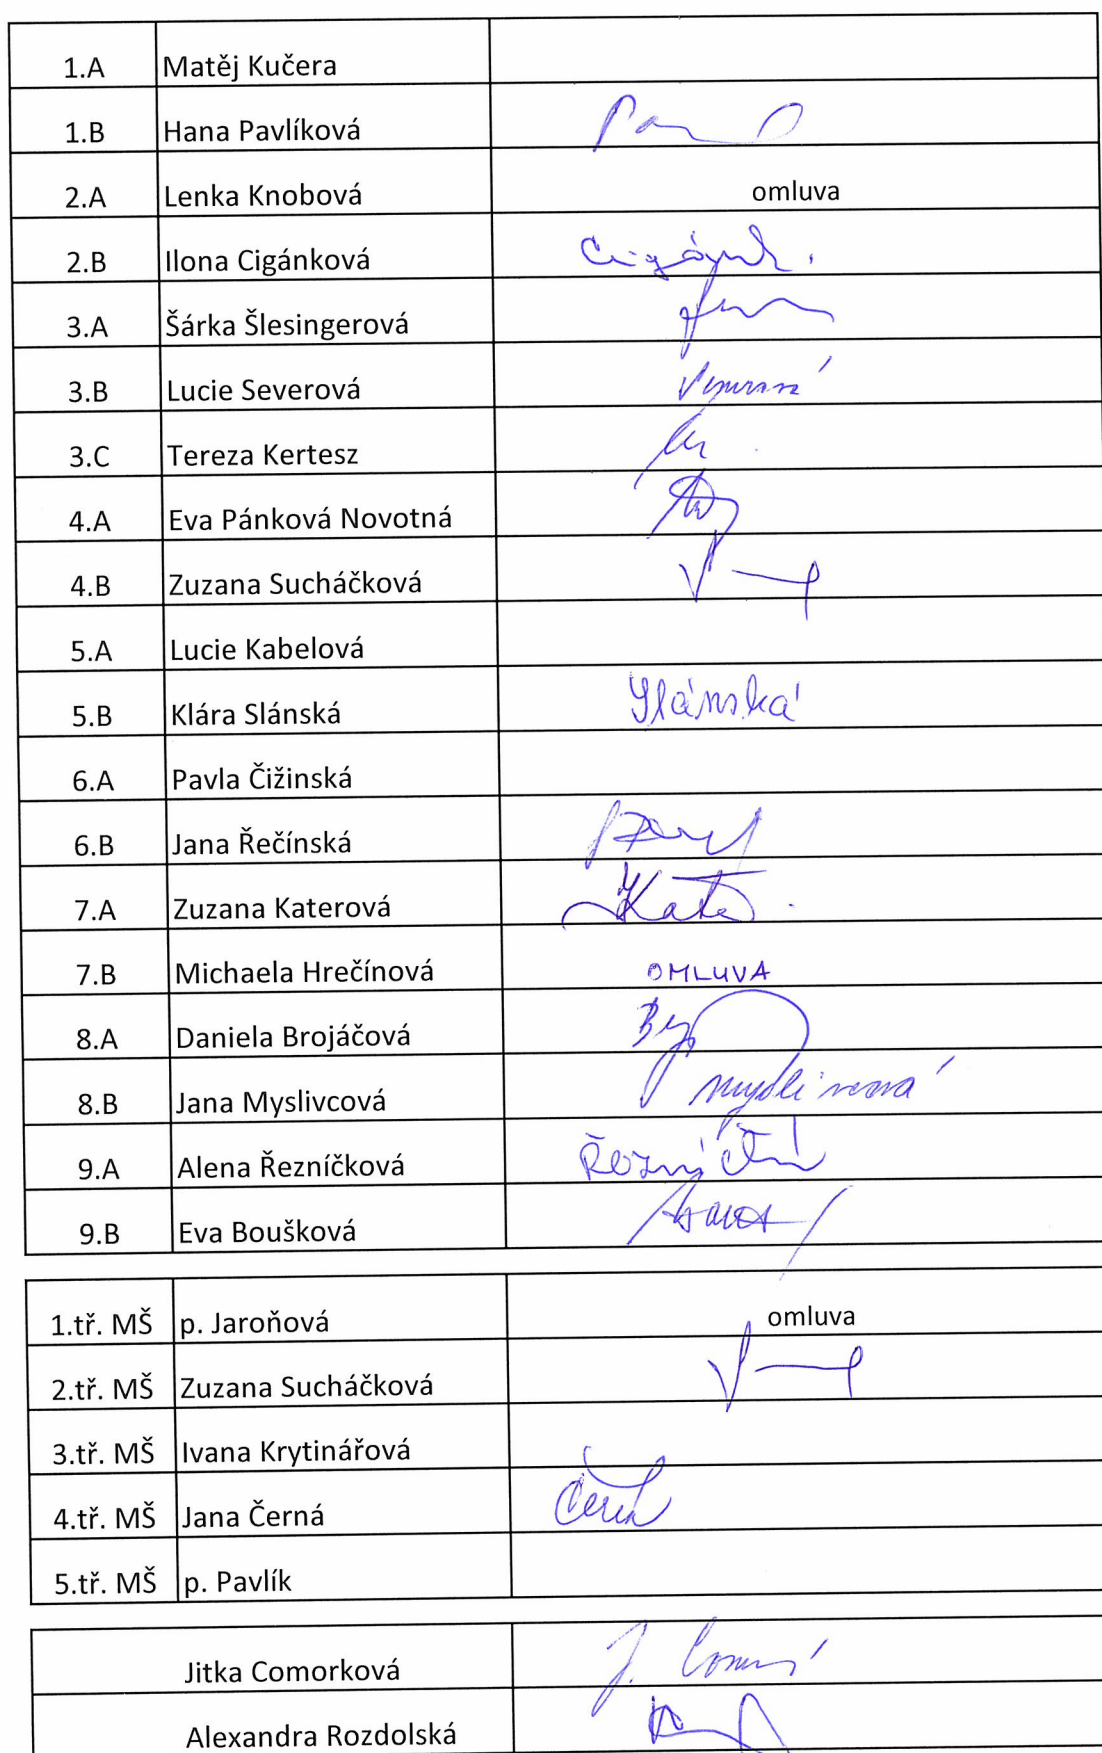 1.A Matěj Kučera
1.B Hana Pavlíková
2.A Lenka Knobová omluva
2.B Ilona Cigánková
3.A Šárka Šlesingerová
3.B Lucie Severová
3.C Tereza Kertesz
4.A Eva Pánková Novotná
4.B Zuzana Sucháčková
5.A Lucie Kabelová
5.B Klára Slánská Slánská
6.A Pavla Čižinská
6.B Jana Řečínská
7.A Zuzana Katerová
7.B Michaela Hrečínová OMLUVA
8.A Daniela Brojáčová
8.B Jana Myslivcová
9.A Alena Řezníčková
9.B Eva Boušková
1.tř. MŠ p. Jaroňová omluva
2.tř. MŠ Zuzana Sucháčková
3.tř. MŠ Ivana Krytinářová
4.tř. MŠ Jana Černá
5.tř. MŠ p. Pavlík
Jitka Comorková
Alexandra Rozdolská